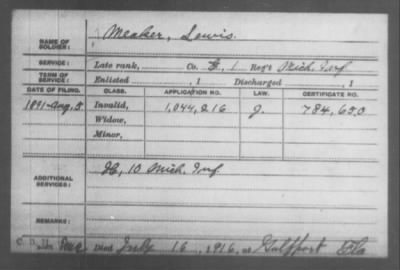 NAME OF SOLDIER: Meaker, Lewis.
SERVICE: Late rank, Co. F, 1 Reg't Mich. Inf.
TERM OF SERVICE: Enlisted , 1 Discharged , 1
DATE OF FILING. CLASS. APPLICATION NO. LAW. CERTIFICATE NO.
1891-Aug. 5 Invalid, 1,044,216 J. 784,650
Widow,
Minor,
ADDITIONAL SERVICES: H, 10 Mich. Inf.
REMARKS:
Died July 16, 1916, at Gulfport Fla